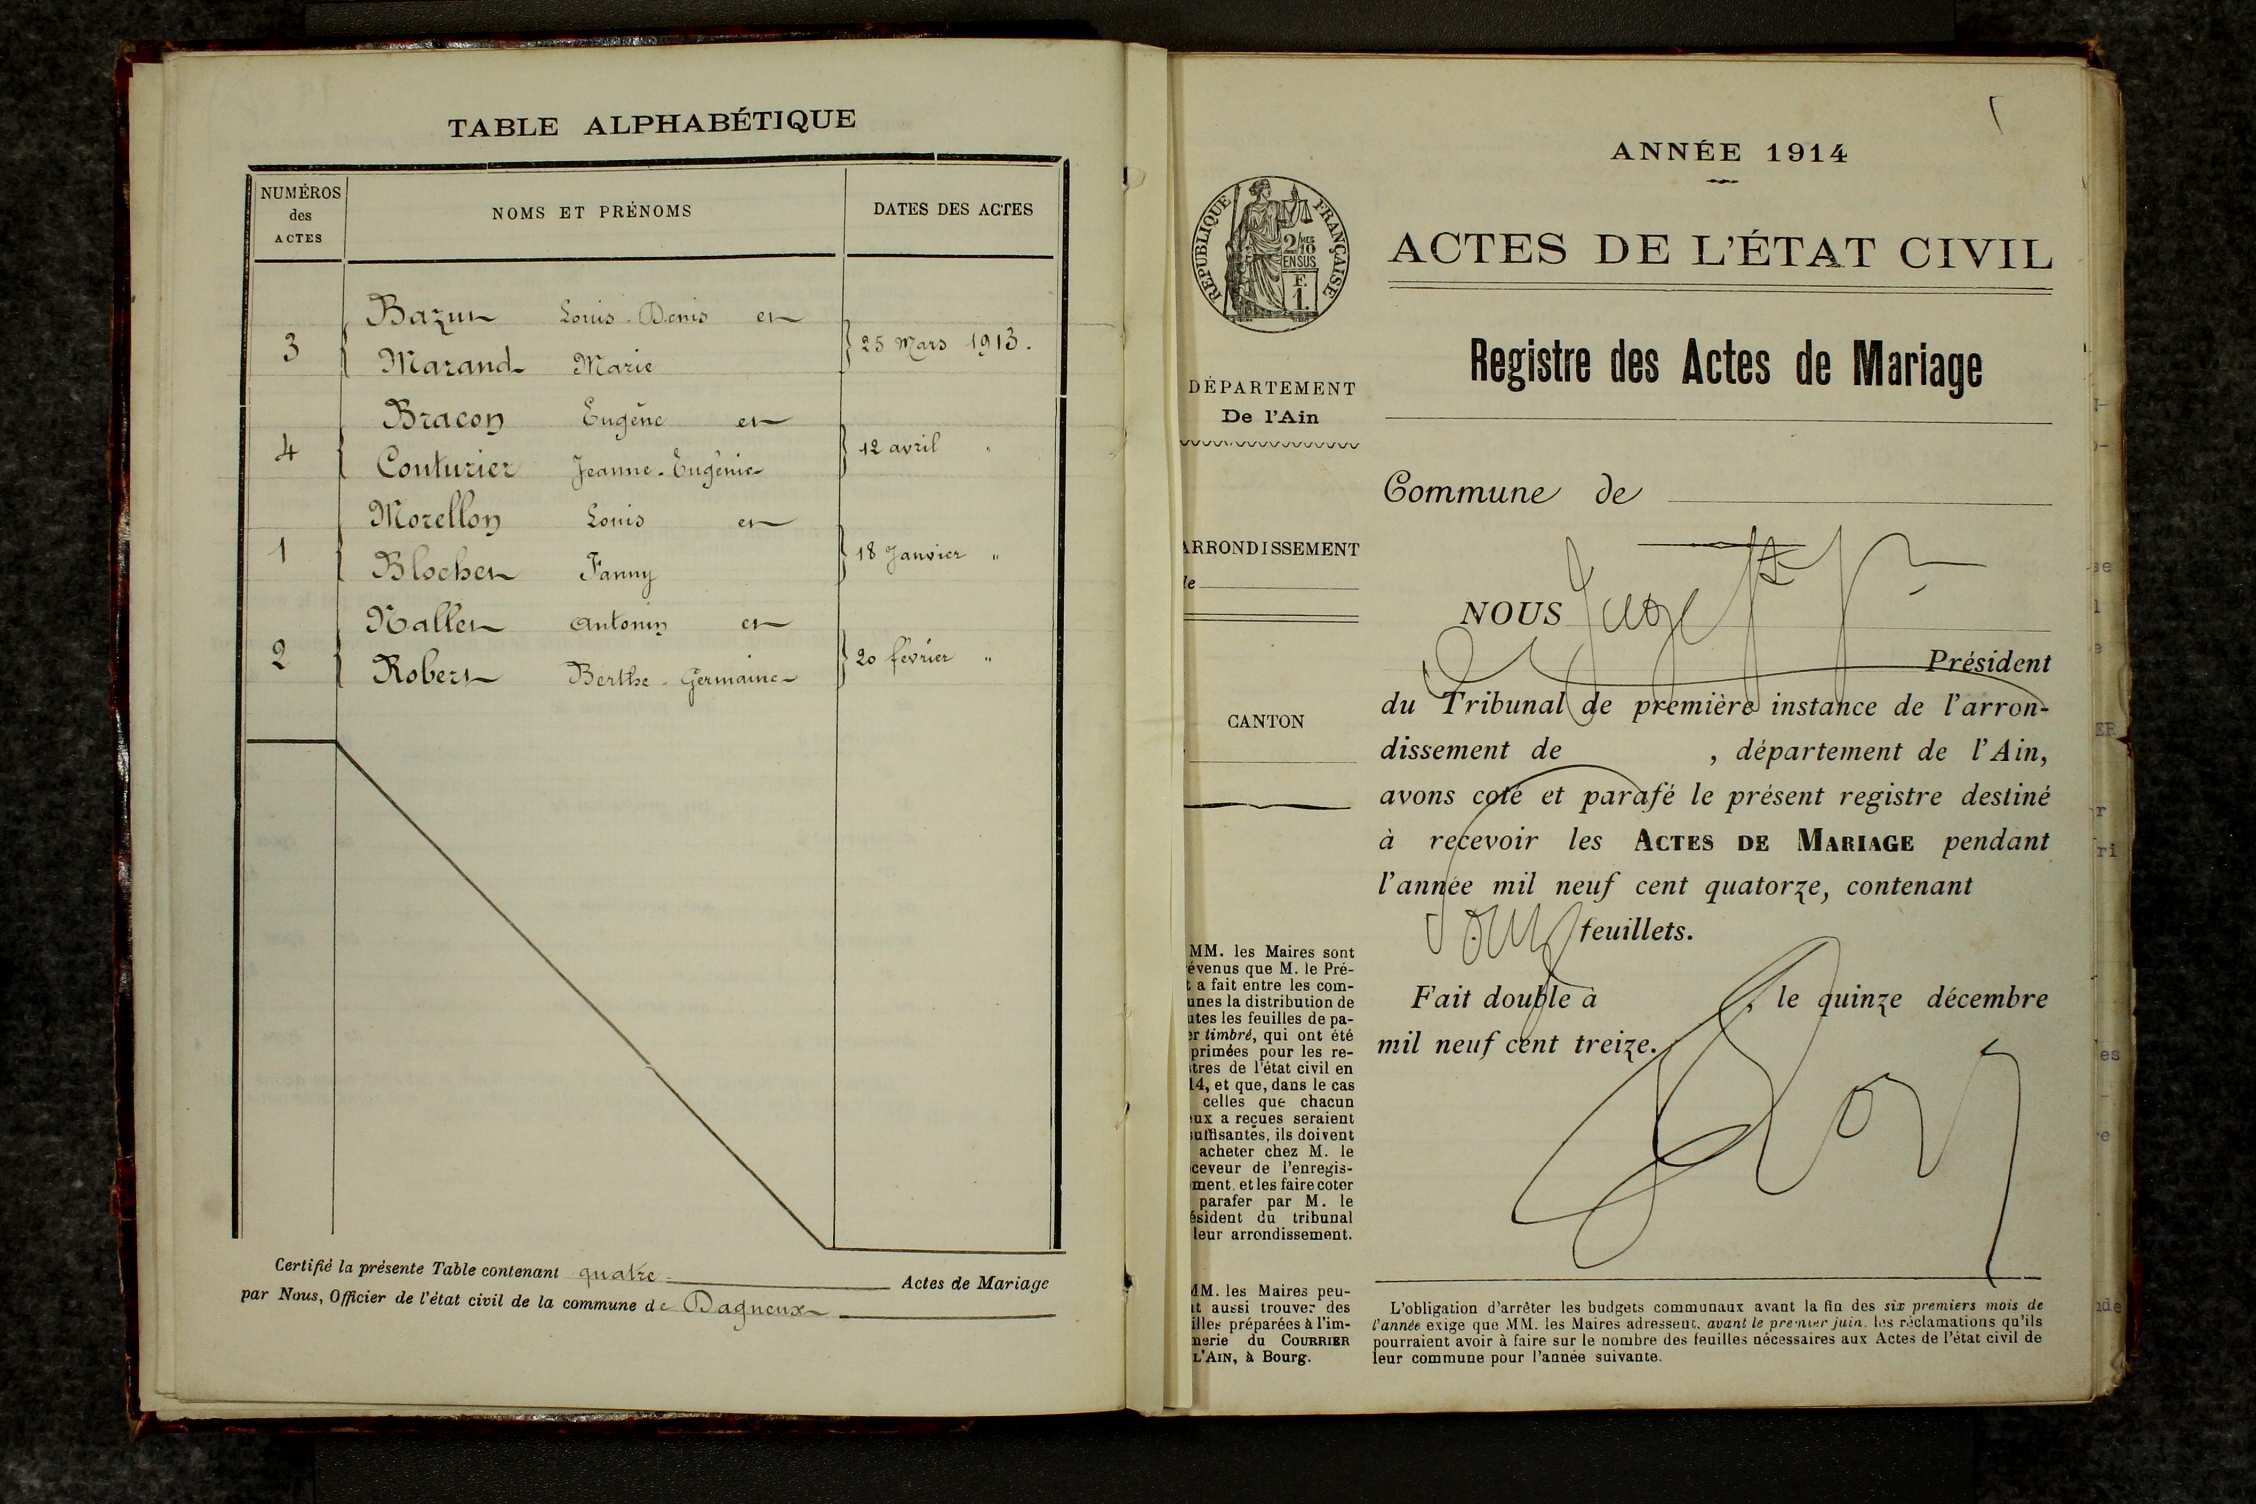 TABLE ALPHABÉTIQUE
NUMÉROS
des
ACTES
NOMS ET PRÉNOMS
DATES DES ACTES
Bazin Louis-Denis et
3
25 Mars 1913.
Marand Marie
Bracon Eugène et
4
12 avril "
Couturier Jeanne-Eugénie
Morellon Louis et
1
18 Janvier "
Blochet Fanny
Nallet Antonin et
2
20 février "
Robert Berthe-Germaine
Certifié la présente Table contenant quatre Actes de Mariage
par Nous, Officier de l'état civil de la commune de Dagneux
RÉPUBLIQUE FRANÇAISE
2/10MES
EN SUS
F.
1.
DÉPARTEMENT
De l'Ain
ARRONDISSEMENT
CANTON
MM. les Maires sont
évenus que M. le Pré-
t a fait entre les com-
unes la distribution de
utes les feuilles de pa-
er timbré, qui ont été
primées pour les re-
tres de l'état civil en
14, et que, dans le cas
celles que chacun
eux a reçues seraient
suffisantes, ils doivent
acheter chez M. le
ceveur de l'enregis-
ment, et les faire coter
parafer par M. le
ésident du tribunal
leur arrondissement.
MM. les Maires peu-
nt aussi trouver des
illes préparées à l'im-
merie du COURRIER
L'AIN, à Bourg.
ANNÉE 1914
ACTES DE L'ÉTAT CIVIL
Registre des Actes de Mariage
Commune de
NOUS
Président
du Tribunal de première instance de l'arron-
dissement de , département de l'Ain,
avons coté et parafé le présent registre destiné
à recevoir les ACTES DE MARIAGE pendant
l'année mil neuf cent quatorze, contenant
feuillets.
Fait double à , le quinze décembre
mil neuf cent treize.
L'obligation d'arrêter les budgets communaux avant la fin des six premiers mois de
l'année exige que MM. les Maires adressent, avant le premier juin, les réclamations qu'ils
pourraient avoir à faire sur le nombre des feuilles nécessaires aux Actes de l'état civil de
leur commune pour l'année suivante.